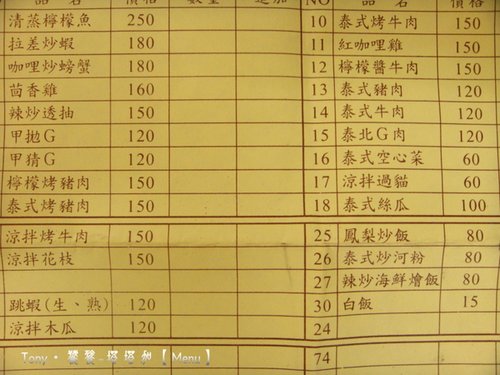 品 名 價格 數量 追加
清蒸檸檬魚 250
拉差炒蝦 180
咖哩炒螃蟹 180
茴香雞 160
辣炒透抽 150
甲拋G 120
甲猜G 120
檸檬烤豬肉 150
泰式烤豬肉 150
涼拌烤牛肉 150
涼拌花枝 150
跳蝦(生、熟) 120
涼拌木瓜 120
NO 品 名 價格
10 泰式烤牛肉 150
11 紅咖哩雞 150
12 檸檬醬牛肉 150
13 泰式豬肉 120
14 泰式牛肉 120
15 泰北G肉 120
16 泰式空心菜 60
17 涼拌過貓 60
18 泰式絲瓜 100
25 鳳梨炒飯 80
26 泰式炒河粉 80
27 辣炒海鮮燴飯 80
30 白飯 15
24
74
Tony‧饕餮-塔塔加【Menu】